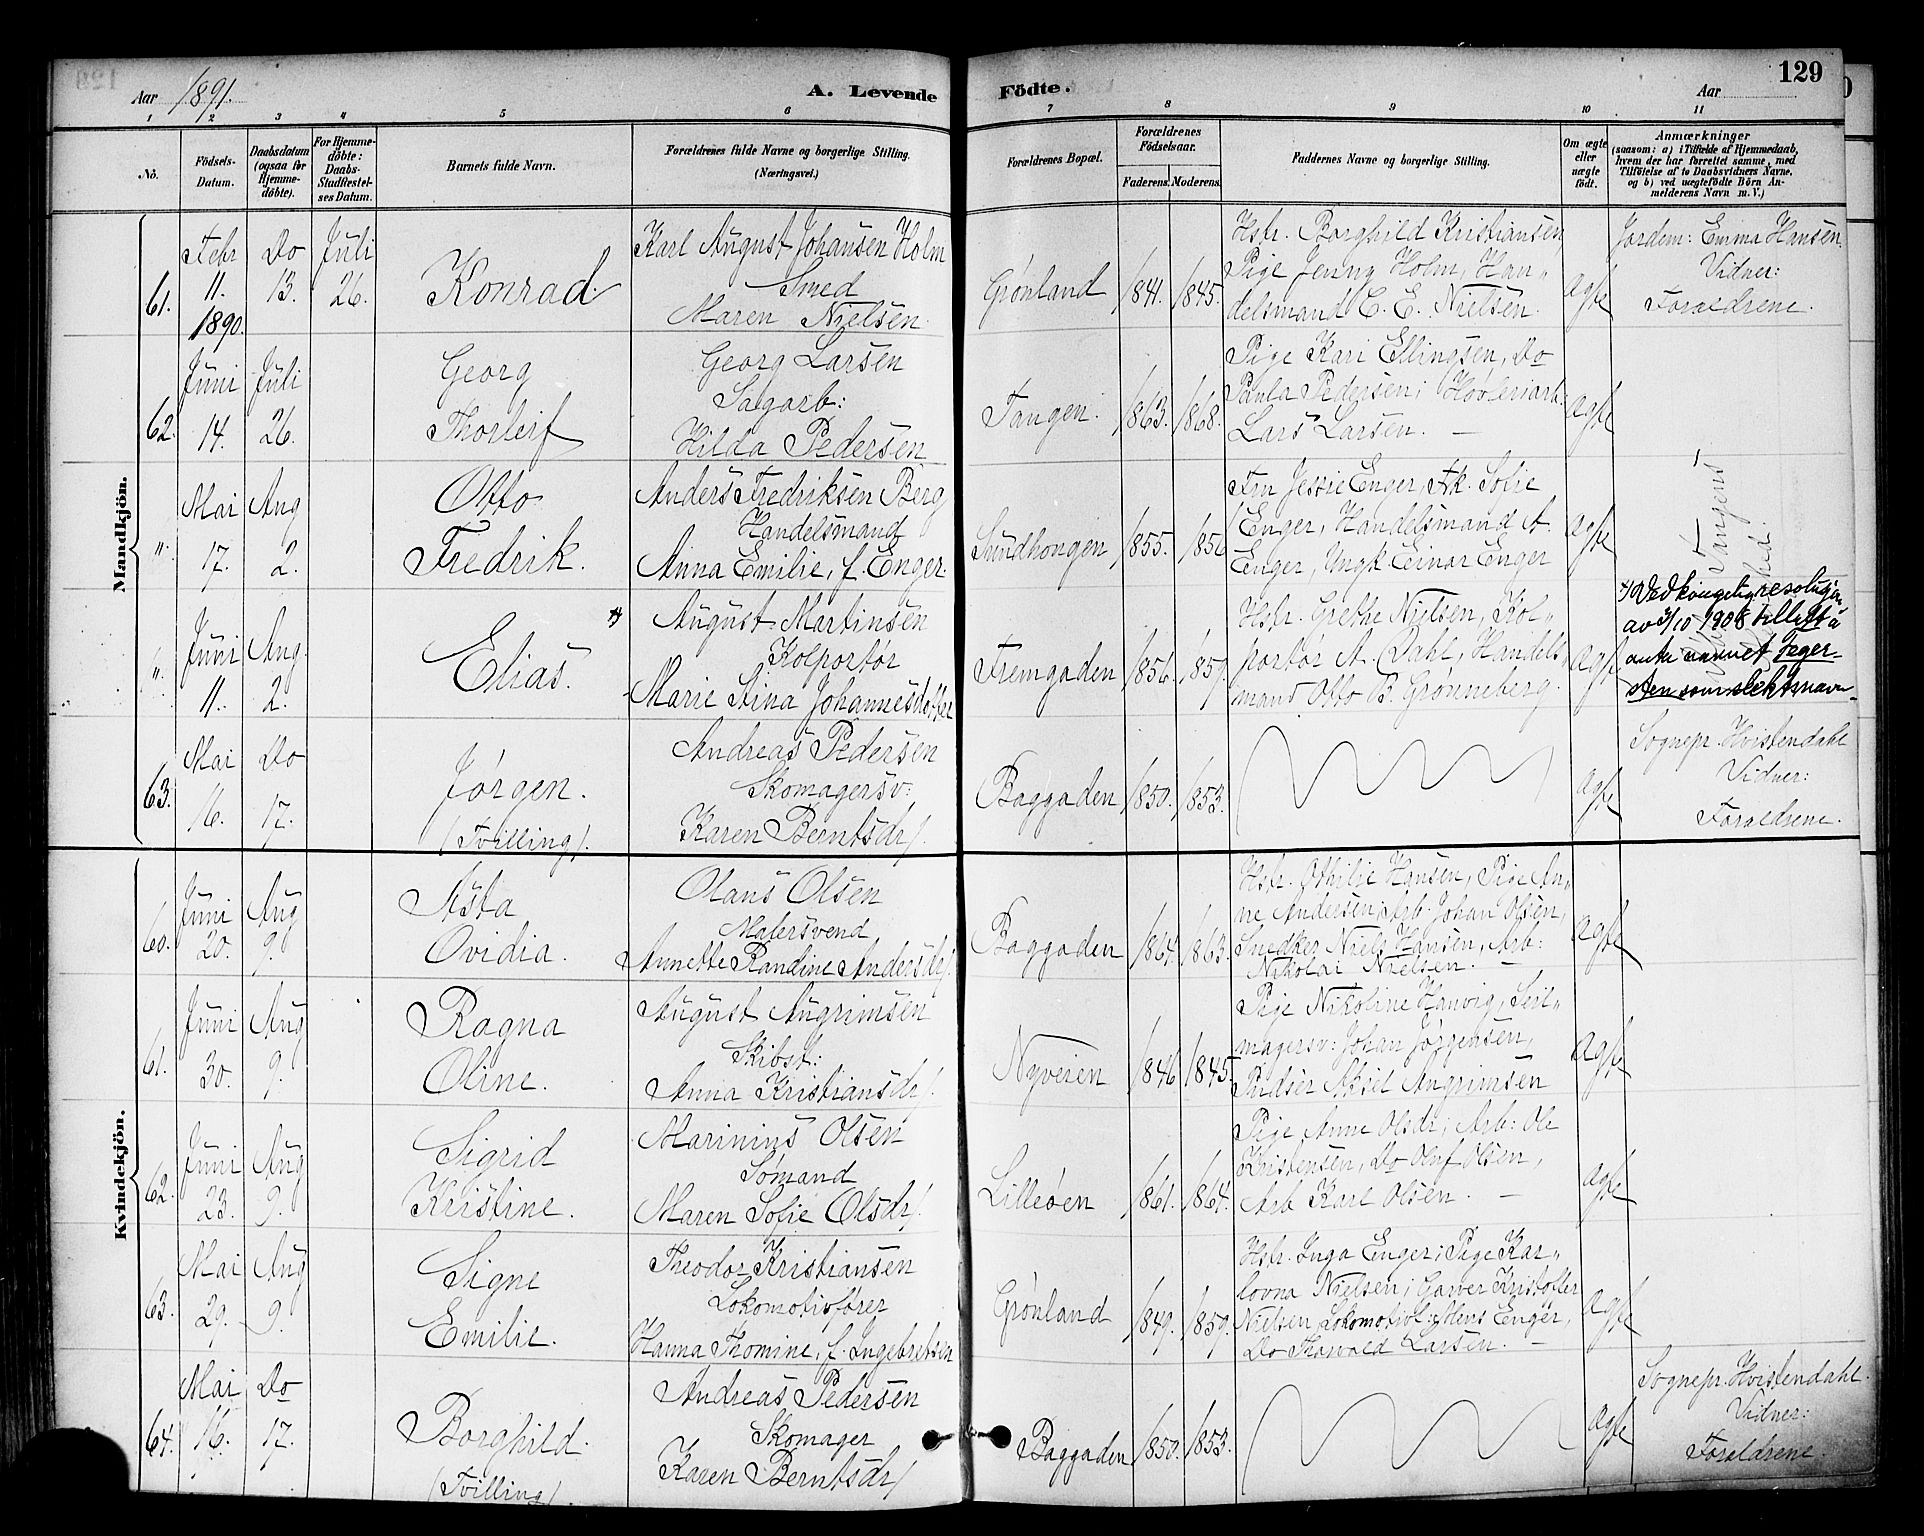 Aar 1891. A. Levende Födte. Aar 129
1 2 3 4 5 6 7 8 9 10 11
No.
Födsels-Datum.
Daabsdatum (ogsaa for Hjemme-döbte).
For Hjemme-döbte: Daabs-Stadfæstel-ses Datum.
Barnets fulde Navn.
Forældrenes fulde Navne og borgerlige Stilling.
(Næringsvei.)
Forældrenes Bopæl.
Forældrenes Födselsaar.
Faderens. Moderens.
Faddernes Navne og borgerlige Stilling.
Om ægte eller uægte födt.
Anmærkninger
(saasom: a) i Tilfælde af Hjemmedaab,
hvem der har forrettet samme, med
Tilföielse af to Daabsvidners Navne,
og b) ved uægtefödte Börn An-
melderens Navn m. V.)
Mandkjön.
61. Febr 11. 1890. Do 13. Juli 26.
Konrad.
Karl August Johansen Holm
Smed
Maren Nielsen.
Grønland 1841. 1845.
Hstr. Borghild Kristiansen,
Pige Jenny Holm, Han-
delsmand C. E. Nielsen.
Ægte
Jordem: Emma Hansen
Vidner:
Forældrene.
62. Juni 14. Juli 26.
Georg
Thorleif
Georg Larsen
Sagarb:
Hilda Pedersen
Tangen. 1863. 1868.
Pige Kari Ellingsen, Do
Paula Pedersen; Høvleriarb.
Lars Larsen. —
Ægte
". Mai 17. Aug 2.
Otto
Fredrik.
Anders Fredriksen Berg
Handelsmand
Anna Emilie, f. Enger
Sundhougen 1855. 1856
Fru Jessie Enger, Frk. Sofie
Enger, Handelsmand A.
Enger, Ungk. Einar Enger
Ægte
Tangens
". Juni 11. Aug. 2.
Elias. *)
August Martinsen
Kolportør
Marie Stina Johannesdotter
Fremgaden 1856. 1859.
Hstr. Grethe Nielsen, Kol-
portør A. Dahl, Handels-
mand Otto B. Grønneberg.
Ægte
*) Ved kongelig resolusjon
av 3/10 1908 tillatt å
anta navnet Feger-
sten som slektsnavn.
63. Mai 16. Do 17.
Jørgen.
(Tvilling).
Andreas Pedersen
Skomagersv:
Karen Berntsdr/.
Baggaden 1850. 1853.
Ægte
Sognepr. Hvistendahl
Vidner:
Forældrene.
Kvindekjön.
60. Juni 20. Aug 9.
Asta
Ovidia.
Olaus Olsen
Malersvend
Annette Randine Andersdr/.
Baggaden 1864. 1863.
Hstr. Othilie Hansen, Pige An-
ne Andersen; Arb. Johan Olsen,
Snedker Niels Hansen, Arb:
Nikolai Nielsen. —
Ægte
61. Juni 30. Aug 9.
Ragna
Oline.
August Angrimsen
Skibst:
Anna Kristiansdr/.
Nyveien 1846 1845.
Pige Nikoline Hanvig, Seil-
magersv: Johan Jørgensen,
Pudser Aksel Angrimsen
Ægte
62. Juni 23. Aug 9.
Sigrid
Kristine.
Marinius Olsen
Sømand
Maren Sofie Olsdr/.
Lilleøen 1861. 1864.
Pige Anne Olsdr; Arb: Ole
Kristensen, Do Oluf Olsen,
Arb Karl Olsen. —
Ægte
63. Mai 29. Aug 9.
Signe
Emilie.
Theodor Kristiansen
Lokomotivfører
Hanna Thomine, f. Ingebretsen
Grønland 1849. 1859.
Hstr. Inga Enger; Pige Kar-
lovna Nielsen; Garver Kristoffer
Nielsen, Lokomotivf: Mens Enger,
Do Thorvald Larsen. —
Ægte
64. Mai 16. Do 17.
Borghild.
(Tvilling)
Andreas Pedersen
Skomager
Karen Berntsdr/
Baggaden 1850. 1853.
Ægte
Sognepr. Hvistendahl.
Vidner:
Forældrene.